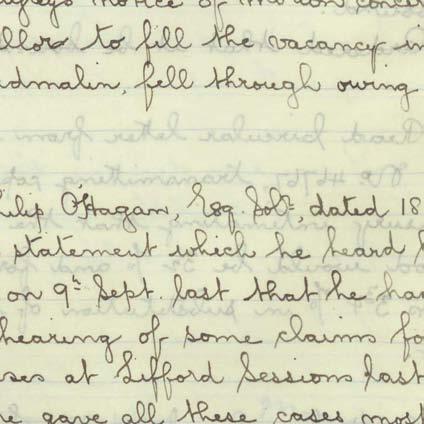 notice of motion
llor to fill the vacancy in
dmalin, fell through owing
ilip O'Hagan, Esq. Solr., dated 18
statement which he heard
on 9th Sept. last that he had
hearing of some claims fo
ses at Lifford Sessions last
re gave all these cases most